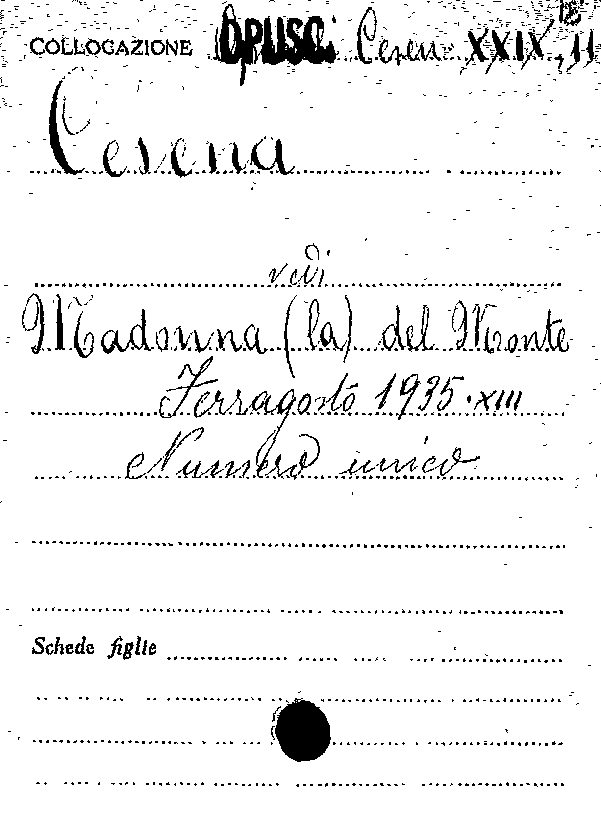 18
COLLOGAZIONE OPUSC. Cesen XXIX, 11
Cesena
vedi
Madonna (la) del Monte
Ferragosto 1935 · XIII
Numero unico
Schede figlie